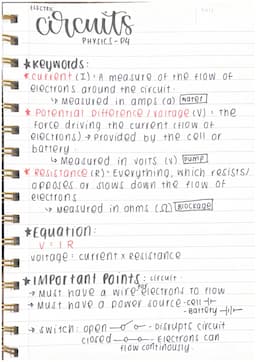 ELECTRIC
circuits
PHYSICS - P4
★Keywords:
★Current (I): A measure of the flow of
electrons around the circuit.
↳ Measured in amps (a) water
★ Potential Difference / Voltage (V): the
force driving the current (flow of
electrons) → Provided by the cell or
battery.
↳ Measured in volts (V) pump
★ Resistance (R): Everything, which resists/
opposes or slows down the flow of
electrons
↳ Measured in ohms (Ω) BLOCKAGE
★Equation:
V = I R
voltage = current x resistance
★Important Points: circuit:
→ Must have a wire for electrons to flow
→ Must have a power source - cell
- Battery
→ switch: open - Disrupts circuit
closed - Electrons can
flow continously.